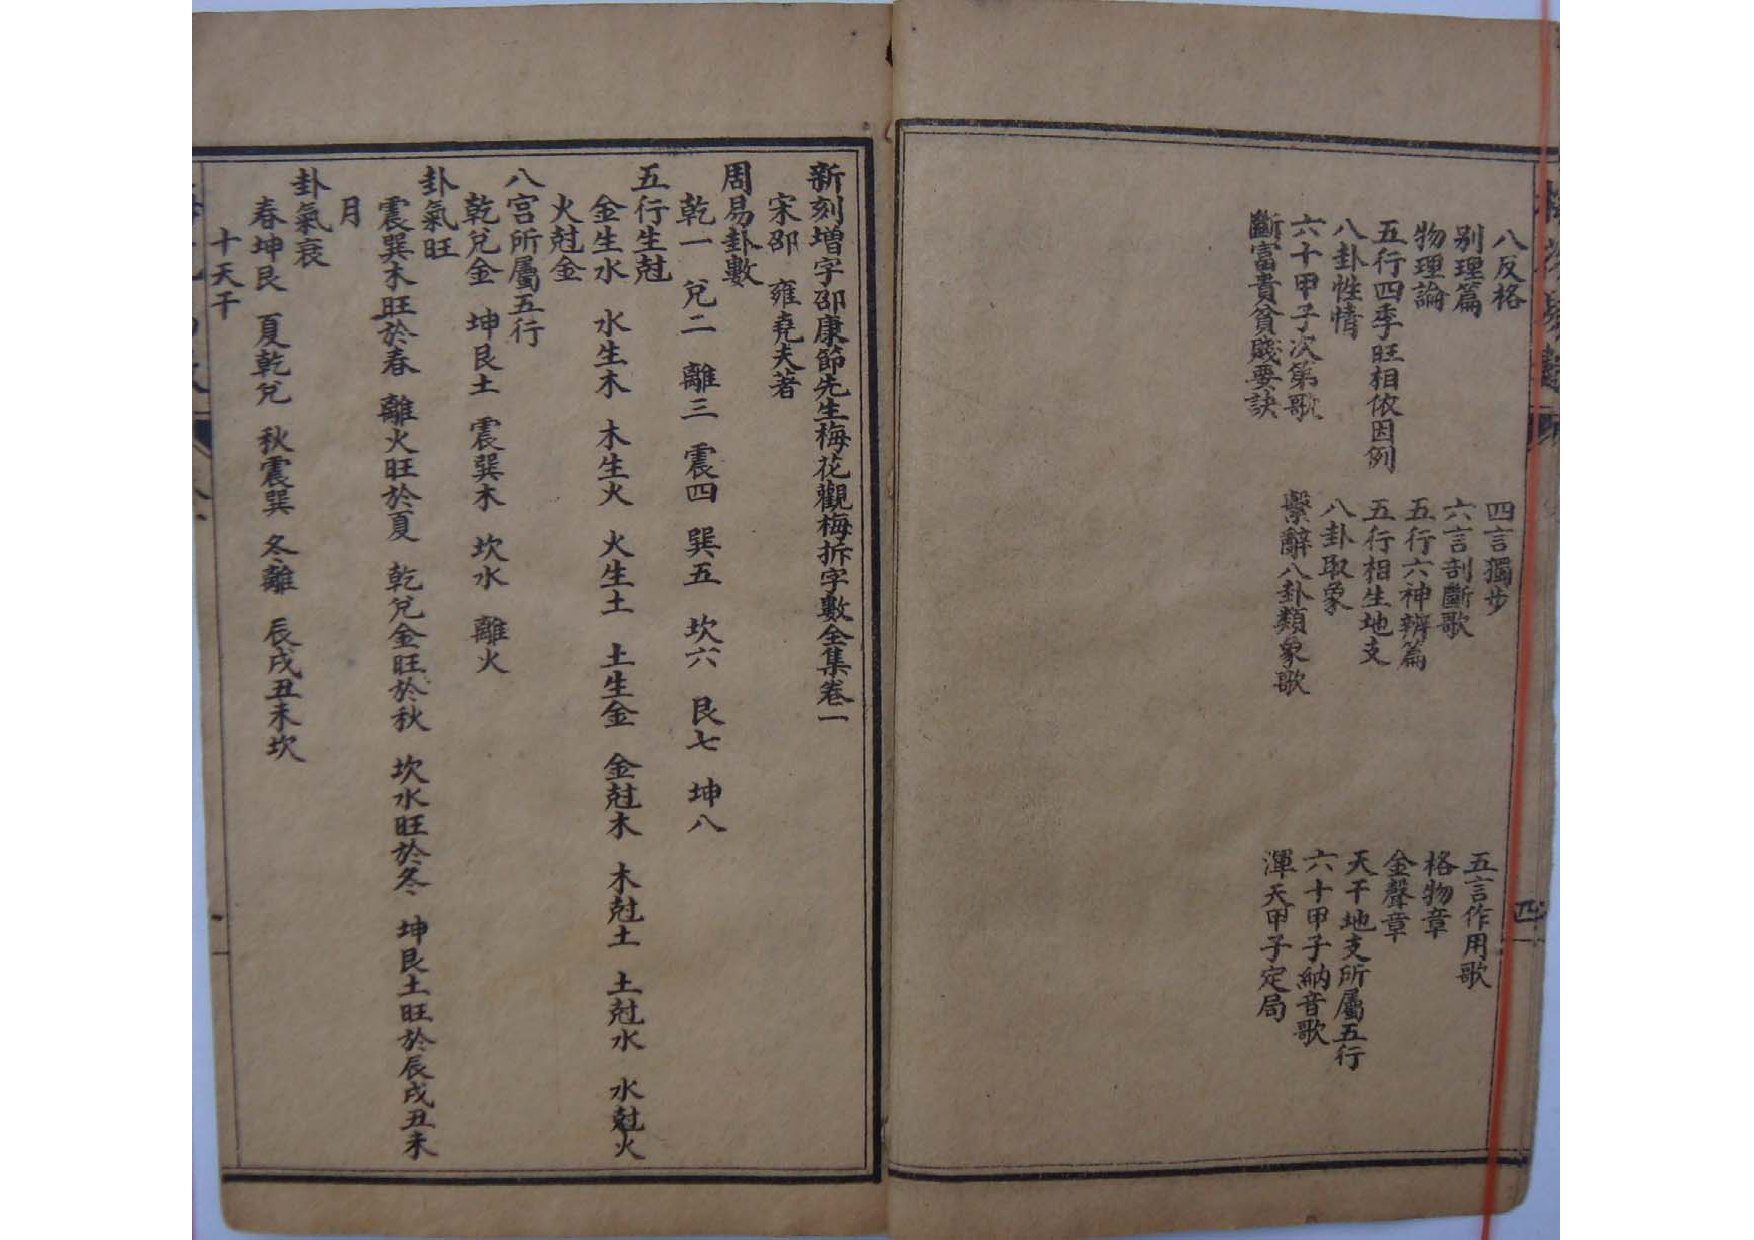 八反格
四言獨步
五言作用歌
别理篇
六言剖斷歌
格物章
物理論
五行六神辨篇
金聲章
五行四季旺相依因例
五行相生地支
天干地支所屬五行
八卦性情
八卦取象
六十甲子納音歌
六十甲子次第歌
繫辭八卦類象歌
渾天甲子定局
斷富貴貧賤要訣
四
新刻增字邵康節先生梅花觀梅拆字數全集卷一
宋邵 雍堯夫著
周易卦數
乾一 兌二 離三 震四 巽五 坎六 艮七 坤八
五行生尅
金生水 水生木 木生火 火生土 土生金 金尅木 木尅土 土尅水 水尅火
火尅金
八宮所屬五行
乾兌金 坤艮土 震巽木 坎水 離火
卦氣旺
震巽木旺於春 離火旺於夏 乾兌金旺於秋 坎水旺於冬 坤艮土旺於辰戌丑未
月
卦氣衰
春坤艮 夏乾兌 秋震巽 冬離 辰戌丑未坎
十天干